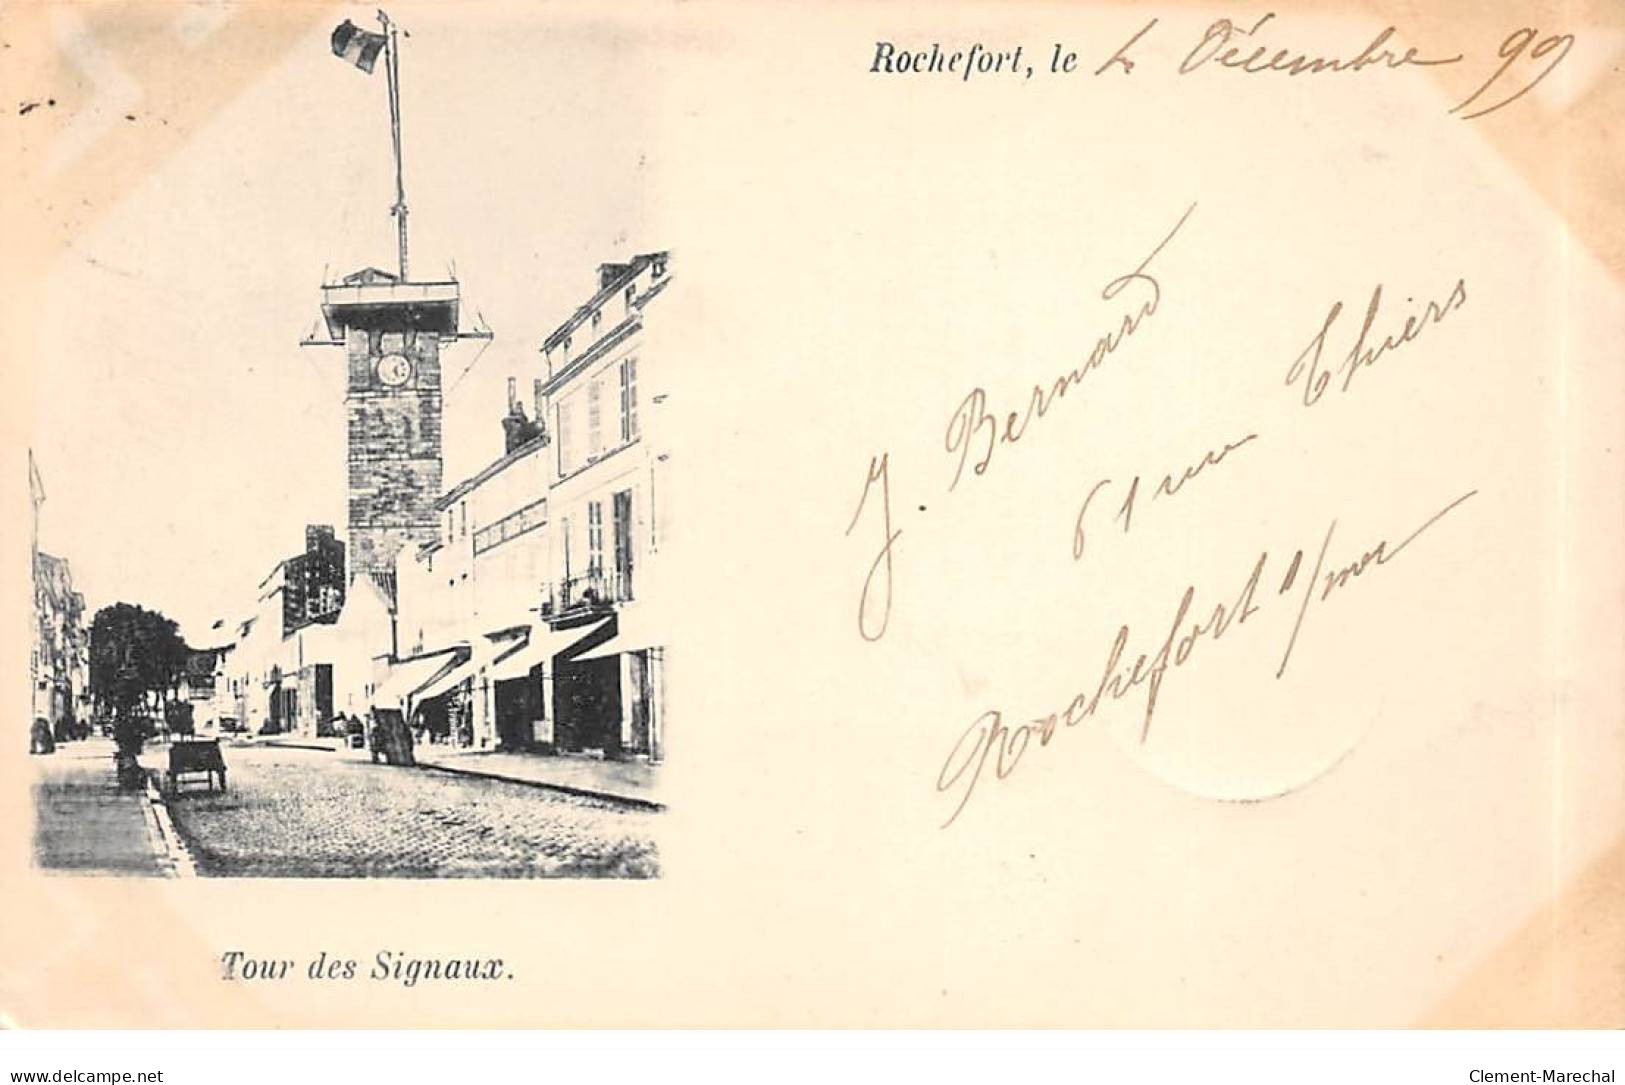 Rochefort, le 4 Décembre 99
J. Bernard
61 rue Thiers
Rochefort s/mer
Tour des Signaux.
delcampe.net
Clement-Marechal